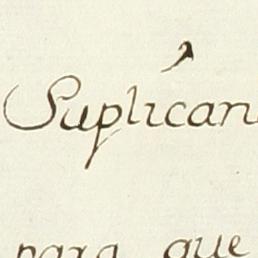 Suplican
para que